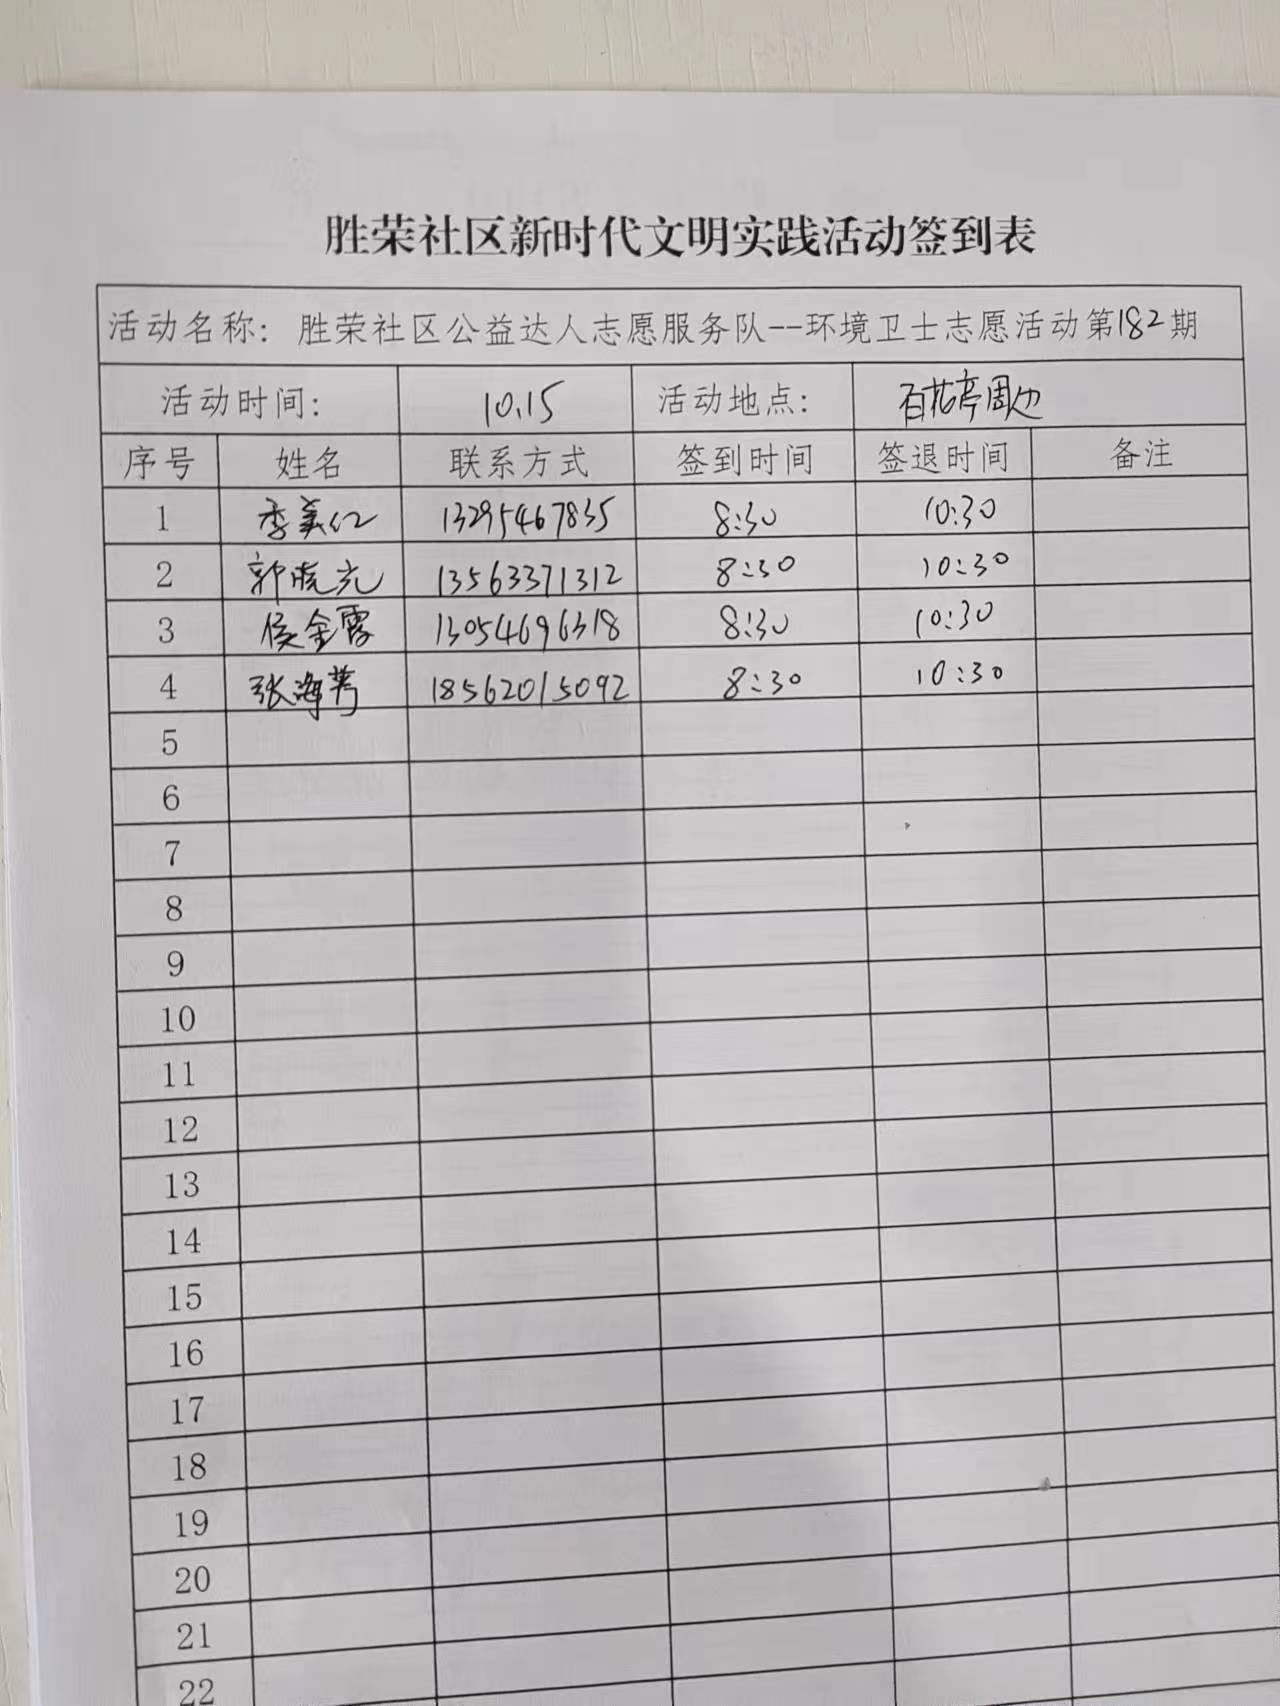 胜荣社区新时代文明实践活动签到表
活动名称: 胜荣社区公益达人志愿服务队--环境卫士志愿活动第182期
活动时间: 10.15 活动地点: 百花亭周边
序号 姓名 联系方式 签到时间 签退时间 备注
1 李美仁 13295467835 8:30 10:30
2 郭晓光 13563371312 8:30 10:30
3 侯金霞 13054696318 8:30 10:30
4 张海 18562015092 8:30 10:30
5
6
7
8
9
10
11
12
13
14
15
16
17
18
19
20
21
22